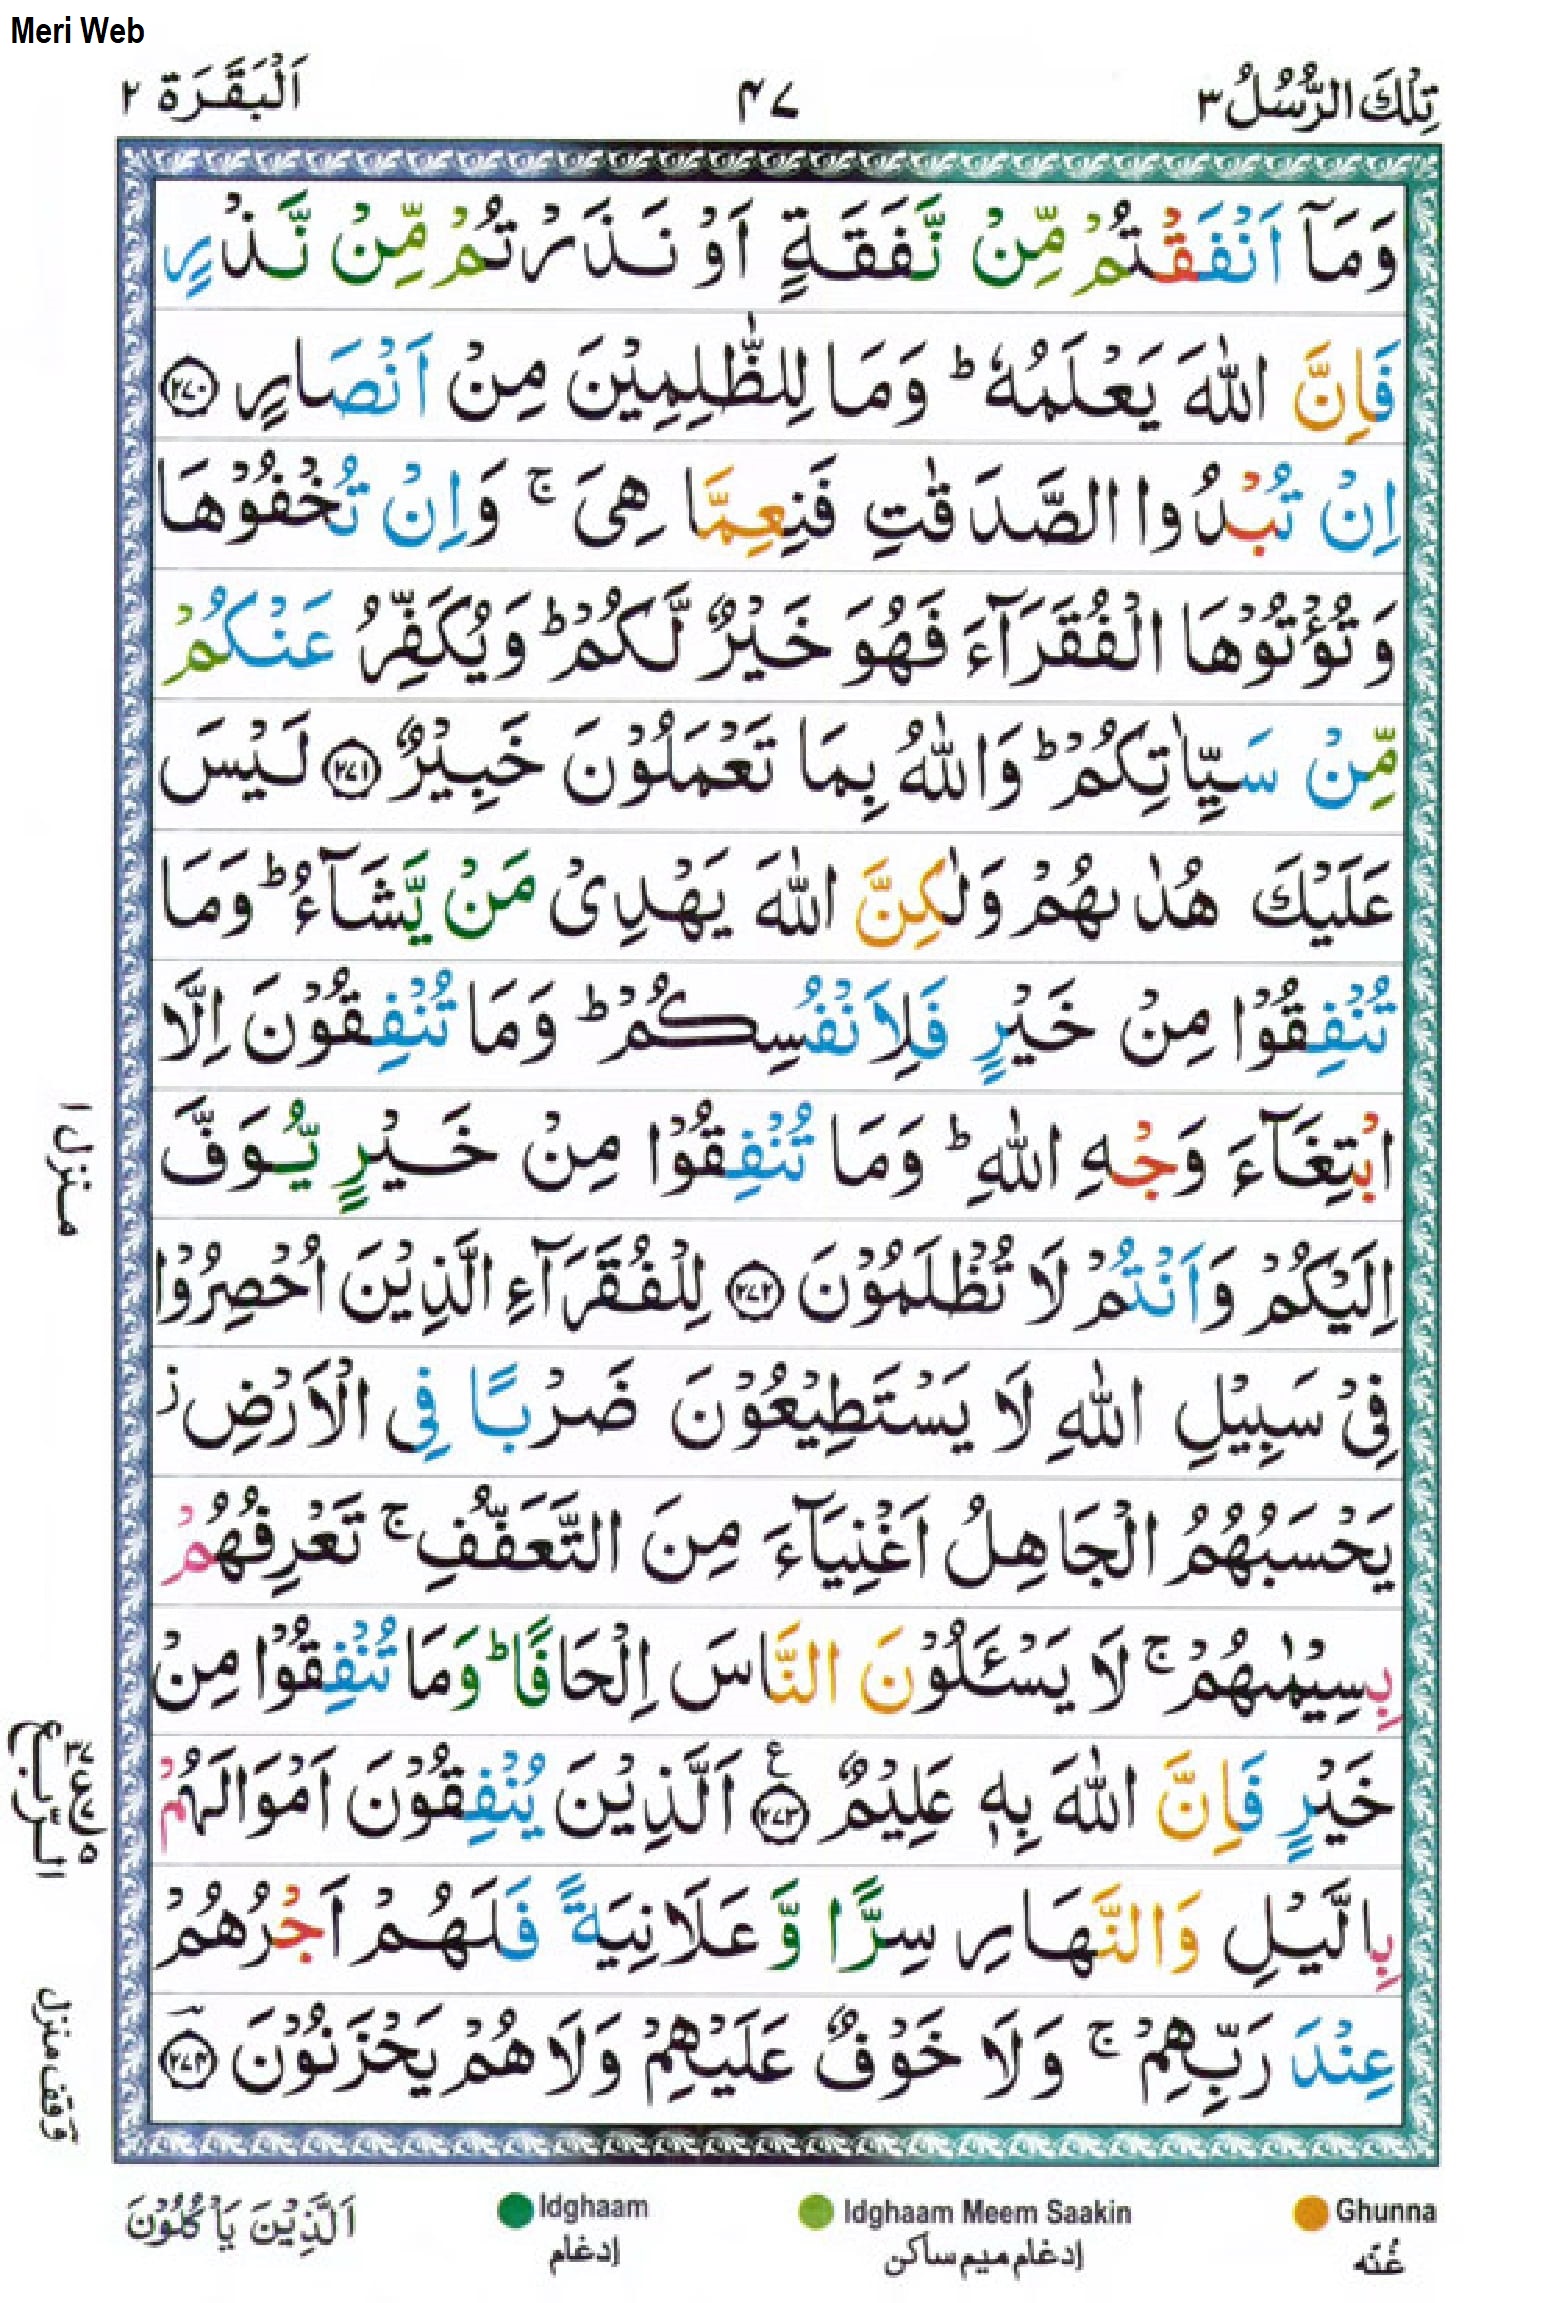 Meri Web
تِلْكَ الرُّسُلُ ٣
٤٧
اَلْبَقَرَة ٢
وَمَآ اَنْفَقْتُمْ مِّنْ نَّفَقَةٍ اَوْ نَذَرْتُمْ مِّنْ نَّذْرٍ
فَاِنَّ اللّٰهَ يَعْلَمُهٗ ؕ وَمَا لِلظّٰلِمِيْنَ مِنْ اَنْصَارٍ ۝٢٧٠
اِنْ تُبْدُوا الصَّدَقٰتِ فَنِعِمَّا هِىَ ۚ وَاِنْ تُخْفُوْهَا
وَتُؤْتُوْهَا الْفُقَرَآءَ فَهُوَ خَيْرٌ لَّكُمْ ؕ وَيُكَفِّرُ عَنْكُمْ
مِّنْ سَيِّاٰتِكُمْ ؕ وَاللّٰهُ بِمَا تَعْمَلُوْنَ خَبِيْرٌ ۝٢٧١ لَيْسَ
عَلَيْكَ هُدٰىهُمْ وَلٰكِنَّ اللّٰهَ يَهْدِىْ مَنْ يَّشَآءُ ؕ وَمَا
تُنْفِقُوْا مِنْ خَيْرٍ فَلِاَنْفُسِكُمْ ؕ وَمَا تُنْفِقُوْنَ اِلَّا
ابْتِغَآءَ وَجْهِ اللّٰهِ ؕ وَمَا تُنْفِقُوْا مِنْ خَيْرٍ يُّوَفَّ
اِلَيْكُمْ وَاَنْتُمْ لَا تُظْلَمُوْنَ ۝٢٧٢ لِلْفُقَرَآءِ الَّذِيْنَ اُحْصِرُوْا
فِىْ سَبِيْلِ اللّٰهِ لَا يَسْتَطِيْعُوْنَ ضَرْبًا فِى الْاَرْضِ ز
يَحْسَبُهُمُ الْجَاهِلُ اَغْنِيَآءَ مِنَ التَّعَفُّفِ ۚ تَعْرِفُهُمْ
بِسِيْمٰىهُمْ ۚ لَا يَسْـَٔلُوْنَ النَّاسَ اِلْحَافًا ؕ وَمَا تُنْفِقُوْا مِنْ
خَيْرٍ فَاِنَّ اللّٰهَ بِهٖ عَلِيْمٌ ۝٢٧٣ ع اَلَّذِيْنَ يُنْفِقُوْنَ اَمْوَالَهُمْ
بِالَّيْلِ وَالنَّهَارِ سِرًّا وَّعَلَانِيَةً فَلَهُمْ اَجْرُهُمْ
عِنْدَ رَبِّهِمْ ۚ وَلَا خَوْفٌ عَلَيْهِمْ وَلَا هُمْ يَحْزَنُوْنَ ۝٢٧٤
منزل ١
الرّبع
وقف منزل
Ghunna
غُنّه
Idghaam Meem Saakin
إدغام ميم ساكن
Idghaam
إدغام
اَلَّذِيْنَ يَاْكُلُوْنَ